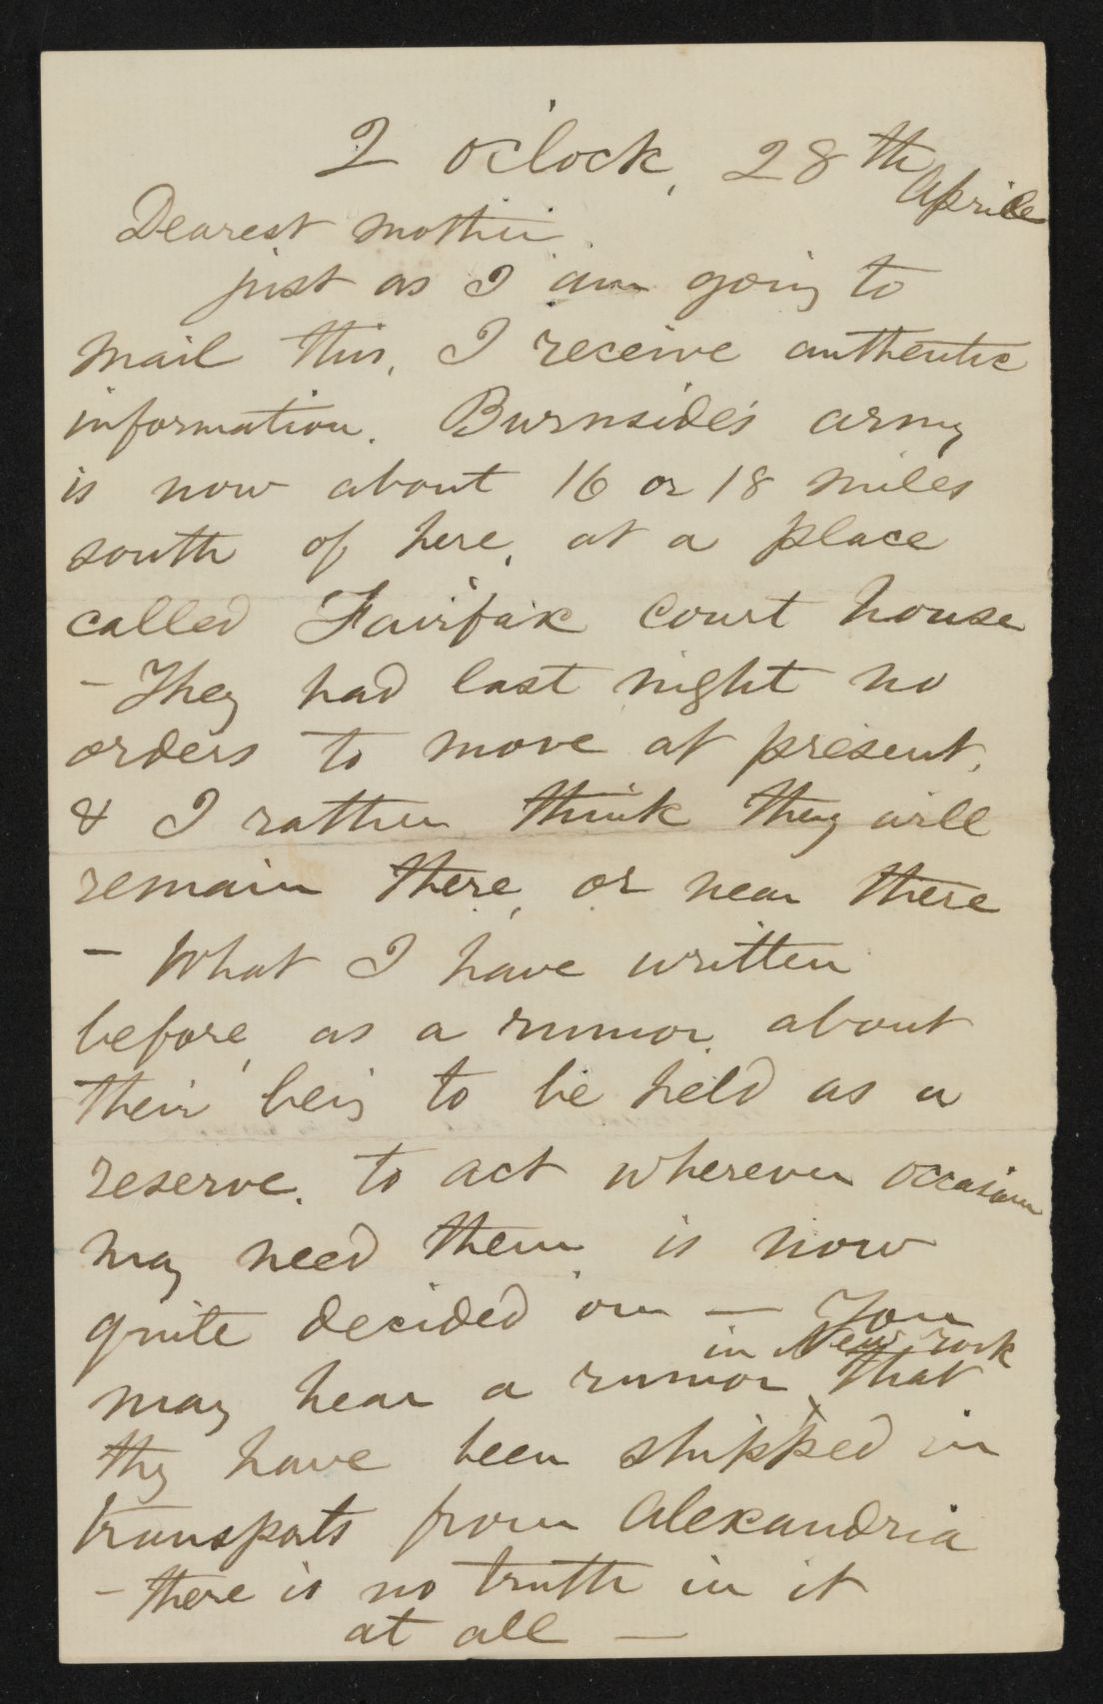 2 o'clock, 28th
April
Dearest mother.
just as I am going to
mail this, I receive authentic
information. Burnside's army
is now about 16 or 18 miles
south of here, at a place
called Fairfax Court house
– They had last night no
orders to move at present,
& I rather think they will
remain there, or near there
– What I have written
before, as a rumor, about
their being to be held as a
reserve, to act wherever occasion
may need them, is now
quite decided on — You
in New York
may hear a rumor that
they have been shipped in
transports from Alexandria
– there is no truth in it
at all —